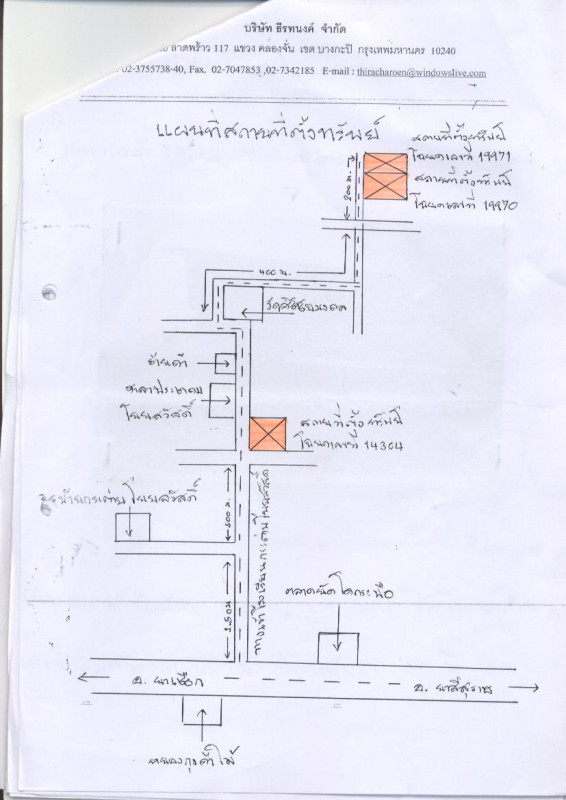 บริษัท ธีรทนงค์ จำกัด
ลาดพร้าว 117 แขวง คลองจั่น เขต บางกะปิ กรุงเทพมหานคร 10240
02-3755738-40, Fax. 02-7047853 ,02-7342185 E-mail : thiracharoen@windowslive.com
แผนที่สถานที่ตั้งทรัพย์
สถานที่ตั้งทรัพย์
โฉนดเลขที่ 19971
สถานที่ตั้งทรัพย์
โฉนดเลขที่ 19970
200 ม.
400 ม.
ร้านค้า
ศาลาประชาคม
โนนสวัสดิ์
สถานที่ตั้งทรัพย์
โฉนดเลขที่ 14304
โนนสวัสดิ์
ตลาดนัดโคกระบือ
อ. นาเชือก
อ. นาสีสุราช
หนองกุงค้าไม้